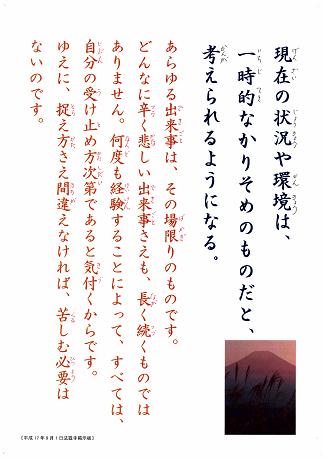 現在の状況や環境は、
一時的なかりそめのものだと、
考えられるようになる。
あらゆる出来事は、その場限りのものです。
どんなに辛く悲しい出来事さえも、長く続くものでは
ありません。何度も経験することによって、すべては、
自分の受け止め方次第であると気付くからです。
ゆえに、捉え方さえ間違えなければ、苦しむ必要は
ないのです。